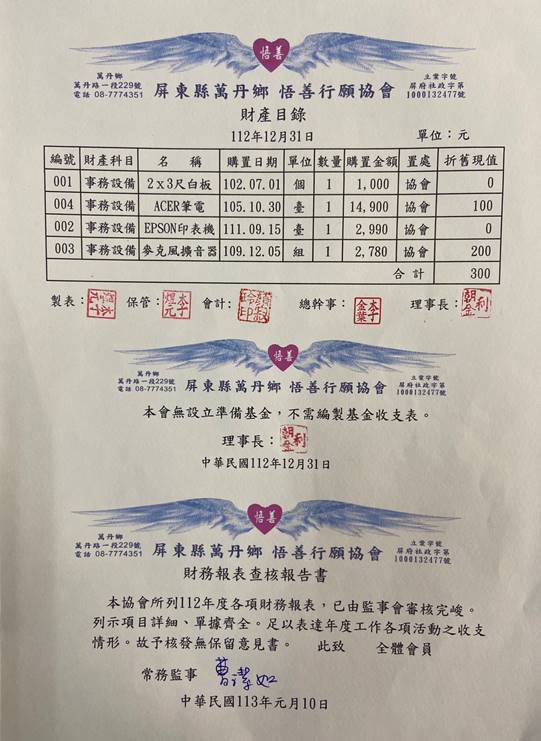 悟善
萬丹鄉
萬丹路一段229號
電話 08-7774351
屏東縣萬丹鄉 悟善行願協會
立案字號
屏府社政字第
1000132477號
財產目錄
112年12月31日
單位：元
編號 財產科目 名 稱 購置日期 單位 數量 購置金額 置處 折舊現值
001 事務設備 2x3尺白板 102.07.01 個 1 1,000 協會 0
004 事務設備 ACER筆電 105.10.30 臺 1 14,900 協會 100
002 事務設備 EPSON印表機 111.09.15 臺 1 2,990 協會 0
003 事務設備 麥克風擴音器 109.12.05 組 1 2,780 協會 200
合 計 300
製表： 保管： 會計： 總幹事： 理事長：
悟善
萬丹鄉
萬丹路一段229號
電話 08-7774351
屏東縣萬丹鄉 悟善行願協會
立案字號
屏府社政字第
1000132477號
本會無設立準備基金，不需編製基金收支表。
理事長：
中華民國112年12月31日
悟善
萬丹鄉
萬丹路一段229號
電話 08-7774351
屏東縣萬丹鄉 悟善行願協會
立案字號
屏府社政字第
1000132477號
財務報表查核報告書
本協會所列112年度各項財務報表，已由監事會審核完峻。
列示項目詳細、單據齊全。足以表達年度工作各項活動之收支
情形。故予核發無保留意見書。 此致 全體會員
常務監事 曹潔如
中華民國113年元月10日